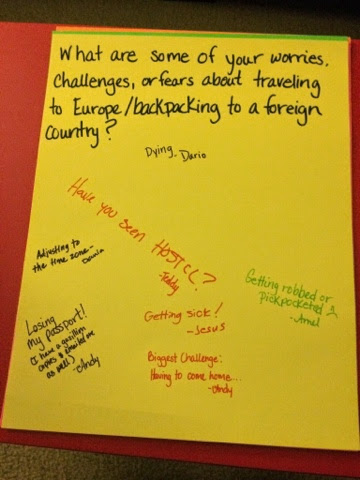 What are some of your worries,
Challenges, or fears about traveling
to Europe/backpacking to a foreign
Country?
Dying. Dario
Have you seen HOSTEL?
-Teddy
Adjusting to
the time zone-
Getting robbed or
pickpocketed :(
Getting sick!
-Jesus
Losing
my passport!!
(I have a
copies & emailed me
as well) -Andy
Biggest Challenge:
Having to come home...
-Andy